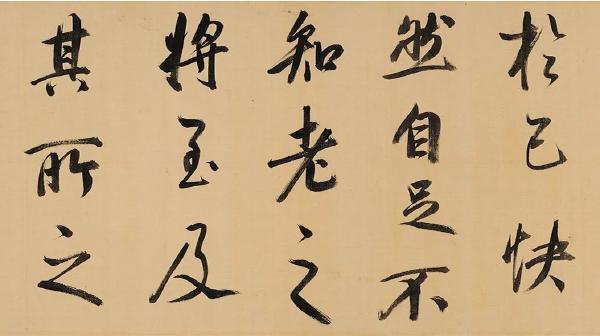 於己快
然自足不
知老之
將至及
其所之